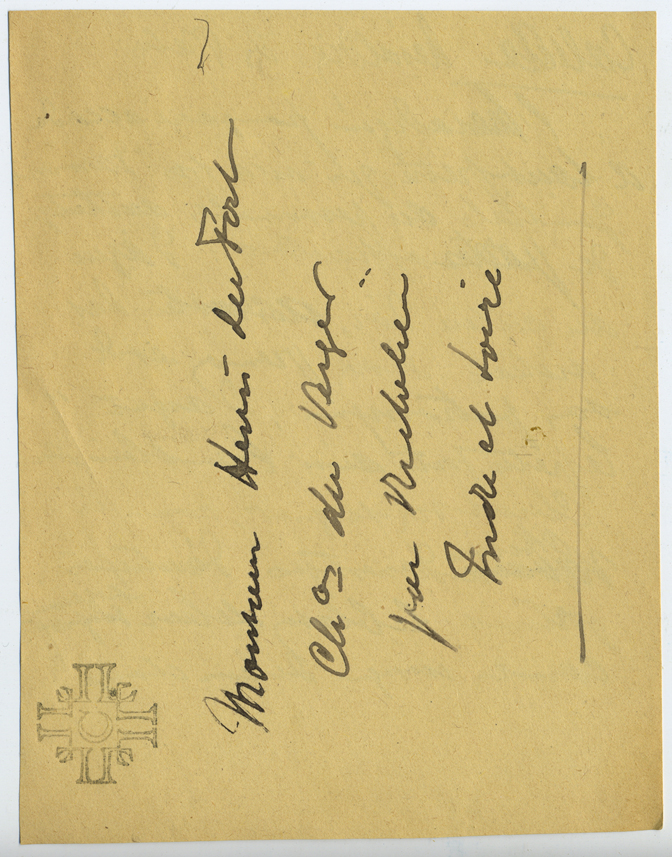 Monsieur Henri du Fort
Chau du Verger
par Richelieu
Indre et Loire
C